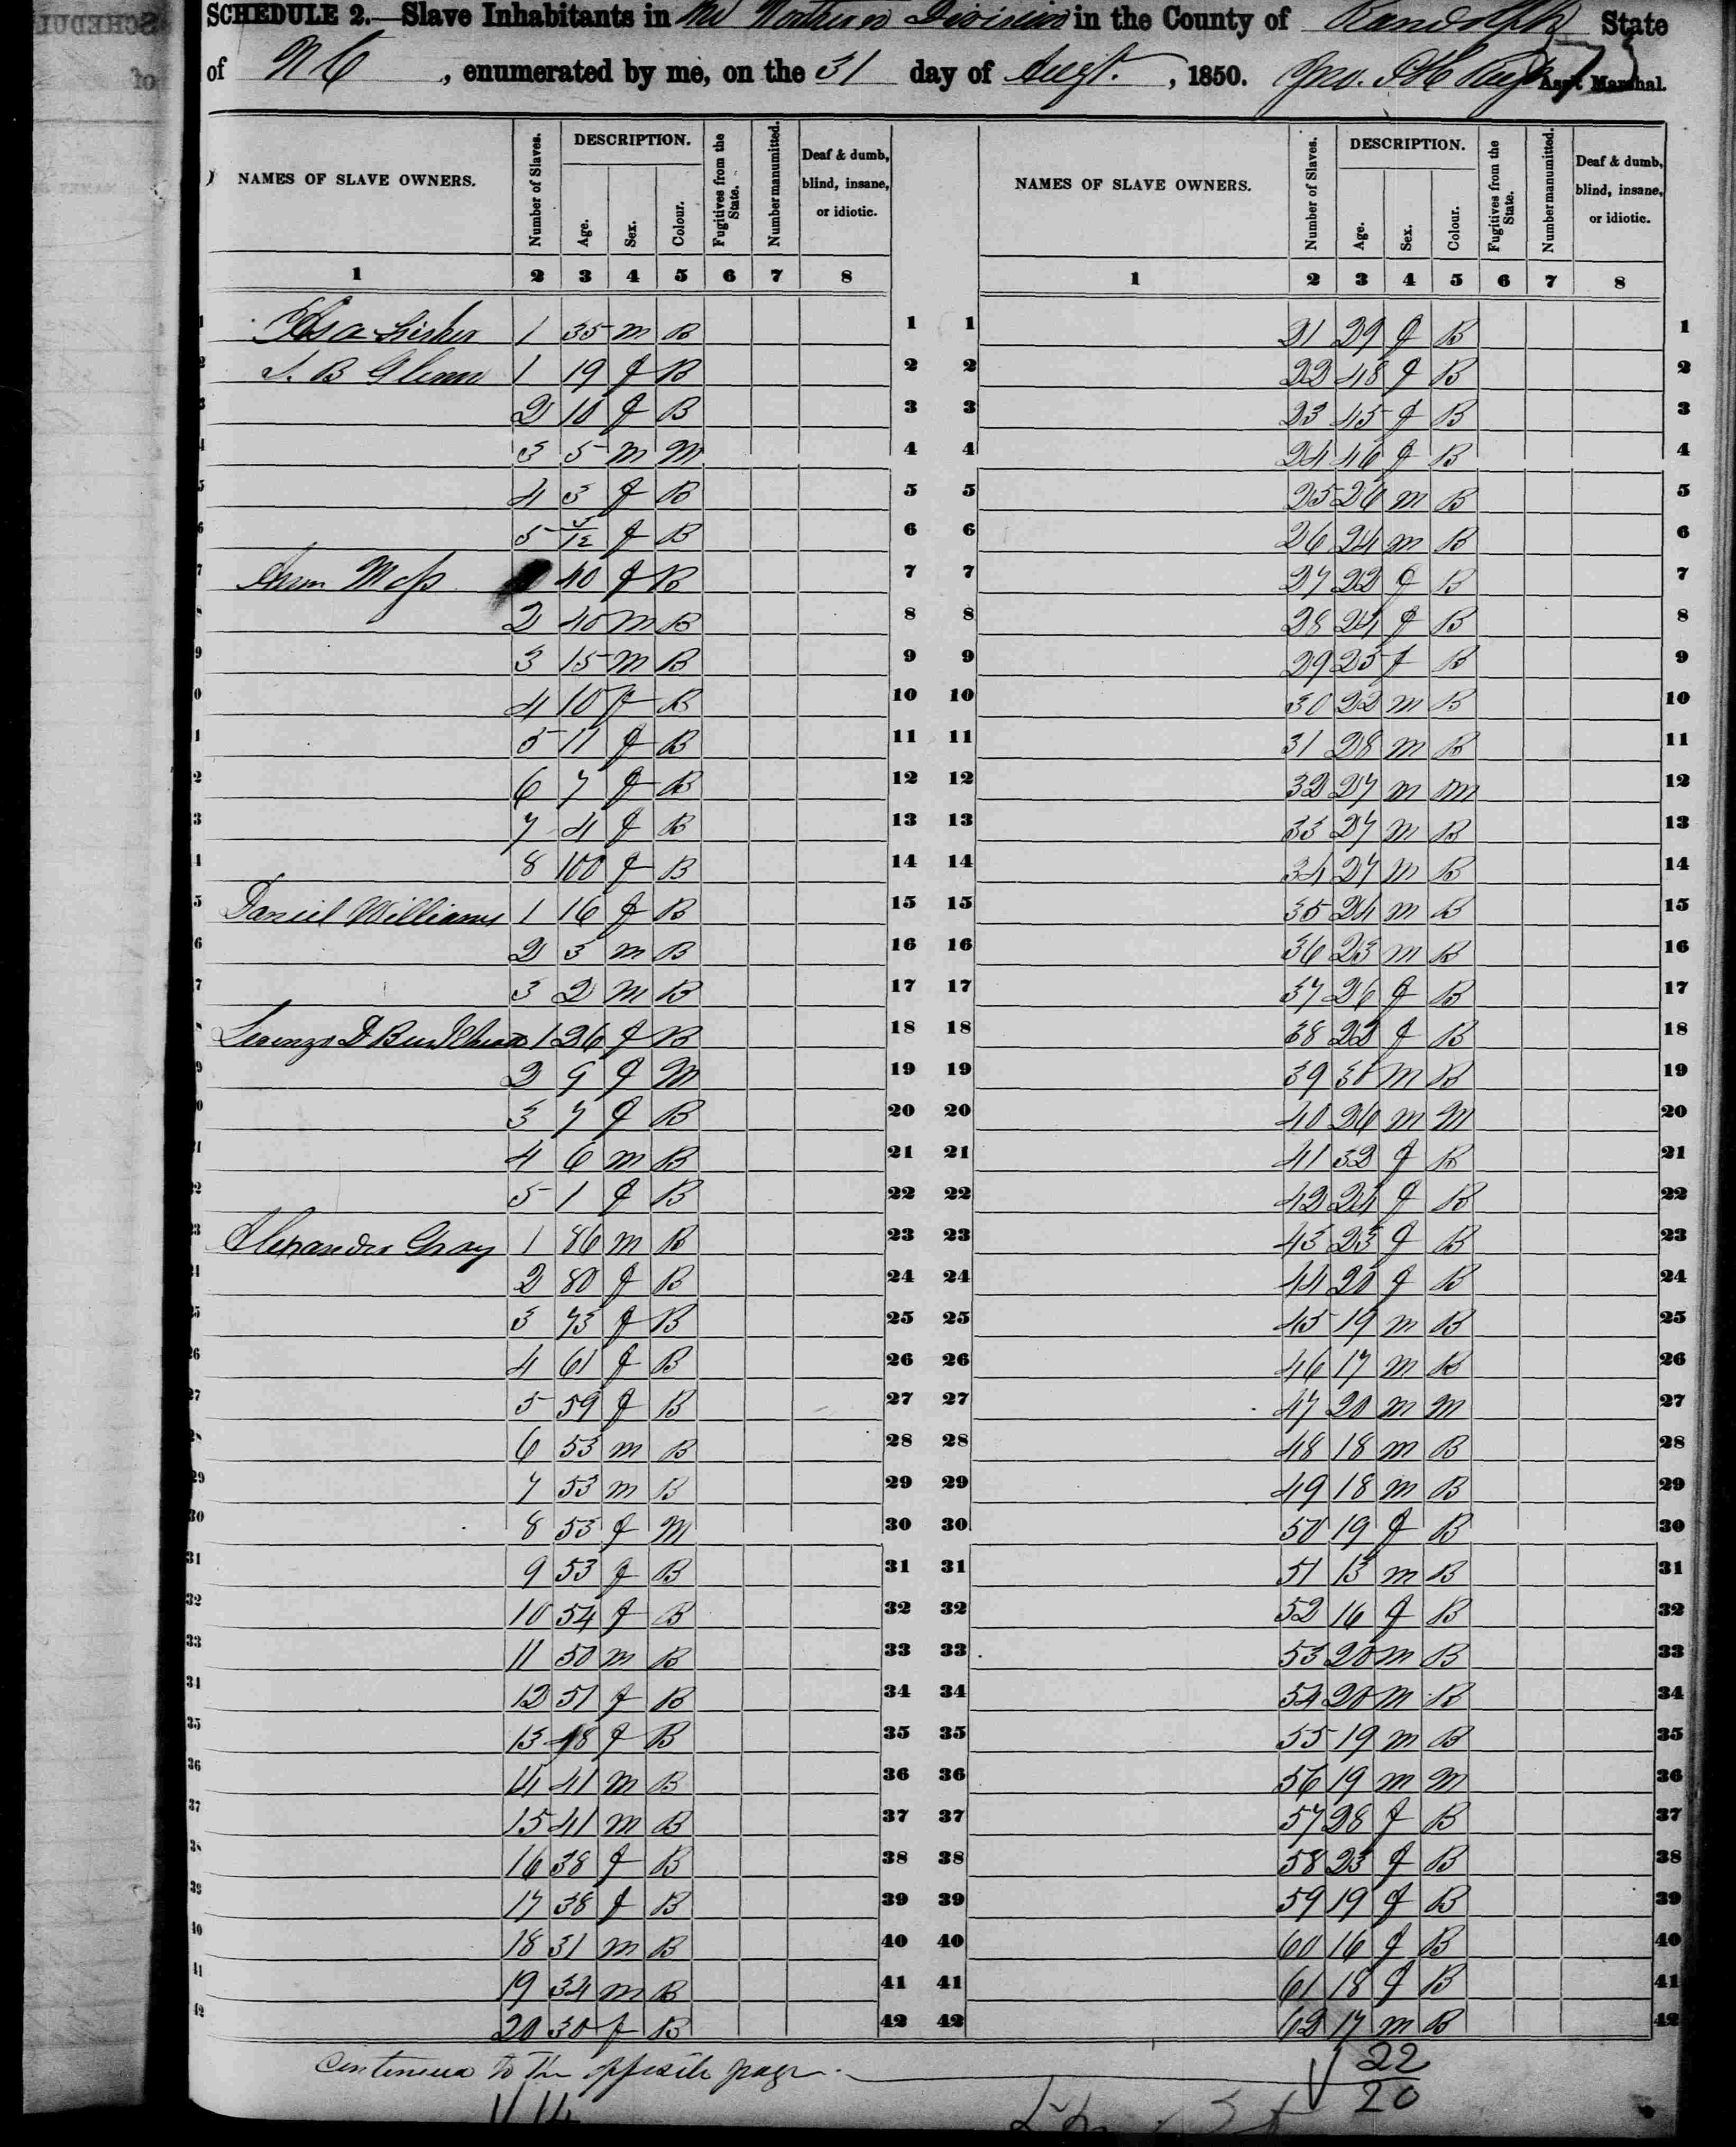 SCHEDULE 2.—Slave Inhabitants in the Northern Division in the County of Randolph State
of N C, enumerated by me, on the 31 day of Augt., 1850. Jno. Ass't Marshal.
NAMES OF SLAVE OWNERS. Number of Slaves. DESCRIPTION. Age. Sex. Colour. Fugitives from the State. Number manumitted. Deaf & dumb, blind, insane, or idiotic. NAMES OF SLAVE OWNERS. Number of Slaves. DESCRIPTION. Age. Sex. Colour. Fugitives from the State. Number manumitted. Deaf & dumb, blind, insane, or idiotic.
1 2 3 4 5 6 7 8 1 2 3 4 5 6 7 8
1 35 m B 1 1 21 29 f B 1
B Glenn 1 19 f B 2 2 22 48 f B 2
2 10 f B 3 3 23 45 f B 3
3 5 m M 4 4 24 46 f B 4
4 3 f B 5 5 25 26 m B 5
5 /12 f B 6 6 26 24 m B 6
40 f B 7 7 27 22 f B 7
2 40 m B 8 8 28 24 f B 8
3 15 m B 9 9 29 25 f B 9
4 10 f B 10 10 30 22 m B 10
5 11 f B 11 11 31 28 m B 11
6 7 f B 12 12 32 27 m m 12
7 4 f B 13 13 33 27 m B 13
8 100 f B 14 14 34 27 m B 14
Daniel Williams 1 16 f B 15 15 35 24 m B 15
2 3 m B 16 16 36 23 m B 16
3 2 m B 17 17 37 26 f B 17
Lorenzo D 1 26 f B 18 18 38 22 f B 18
2 9 f M 19 19 39 30 m B 19
3 7 f B 20 20 40 26 m M 20
4 6 m B 21 21 41 32 f B 21
5 1 f B 22 22 42 24 f B 22
Alexander Gray 1 86 m B 23 23 43 23 f B 23
2 80 f B 24 24 44 20 f B 24
3 73 f B 25 25 45 19 m B 25
4 61 f B 26 26 46 17 m B 26
5 59 f B 27 27 47 20 m M 27
6 53 m B 28 28 48 18 m B 28
7 53 m B 29 29 49 18 m B 29
8 53 f M 30 30 50 19 f B 30
9 53 f B 31 31 51 13 m B 31
10 54 f B 32 32 52 16 f B 32
11 50 m B 33 33 53 20 m B 33
12 51 f B 34 34 54 20 m B 34
13 48 f B 35 35 55 19 m B 35
14 41 m B 36 36 56 19 m M 36
15 41 m B 37 37 57 28 f B 37
16 38 f B 38 38 58 23 f B 38
17 38 f B 39 39 59 19 f B 39
18 31 m B 40 40 60 16 f B 40
19 34 m B 41 41 61 18 f B 41
20 30 f B 42 42 62 17 m B 42
Continued to the opposite page
22
20